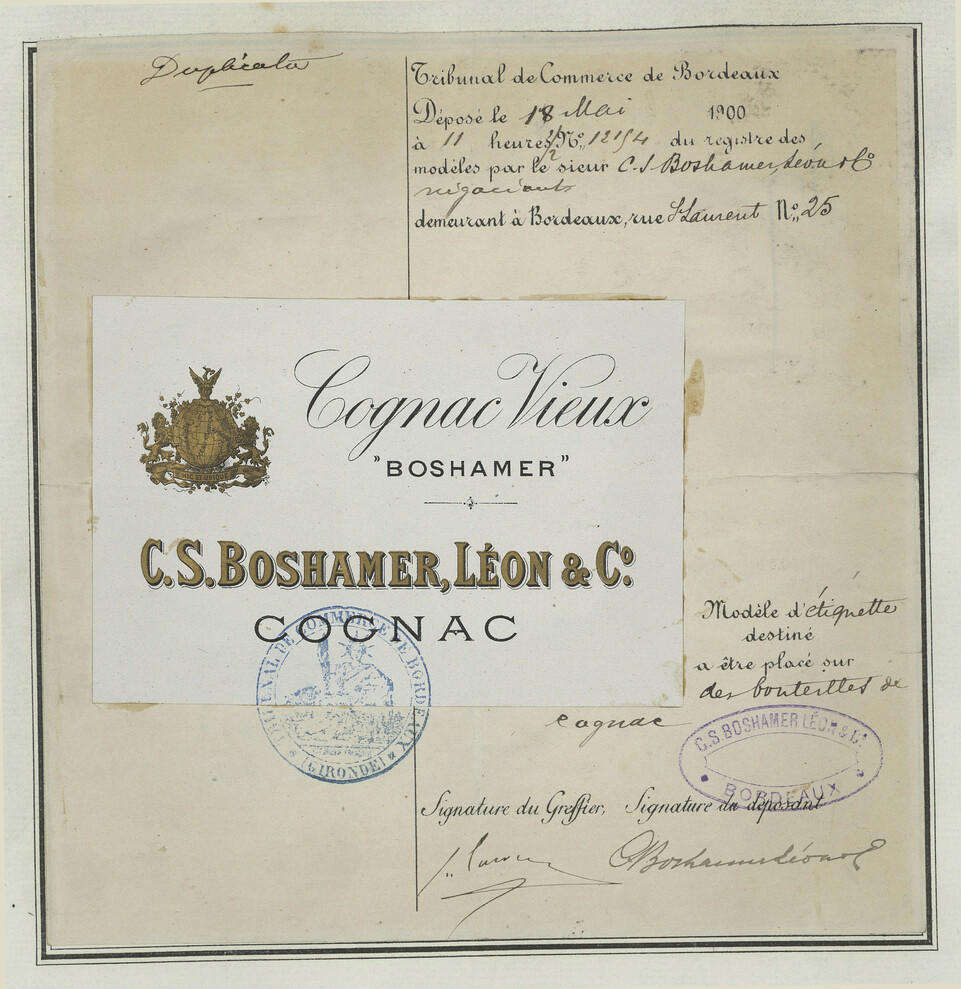 Duplicata
Tribunal de Commerce de Bordeaux
Déposé le 18 Mai 1900
à 11 heures 1/2 No. 12154 du registre des
modèles par le sieur C. S Boshamer, Léon & Co
négociants
demeurant à Bordeaux, rue St Laurent No. 25
Cognac Vieux
"BOSHAMER"
C. S. BOSHAMER, LÉON & Co.
COGNAC
TRIBUNAL DE COMMERCE DE BORDEAUX
(GIRONDE)
Modèle d'étiquette
destiné
a être placé sur
des bouteilles de
cognac
C.S. BOSHAMER LÉON & Co
BORDEAUX
Signature du Greffier, Signature du déposant
CSBoshamer Léon & Co